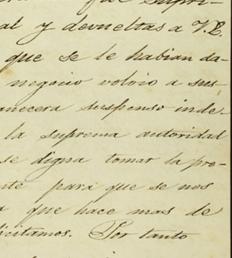 al y devueltas a V.E.
que se le habian da-
negocio volvio a sus
anecera suspenso inde-
la suprema autoridad
se digna tomar la pro-
nte para que se nos
que hace mas de
licitamos. Por tanto